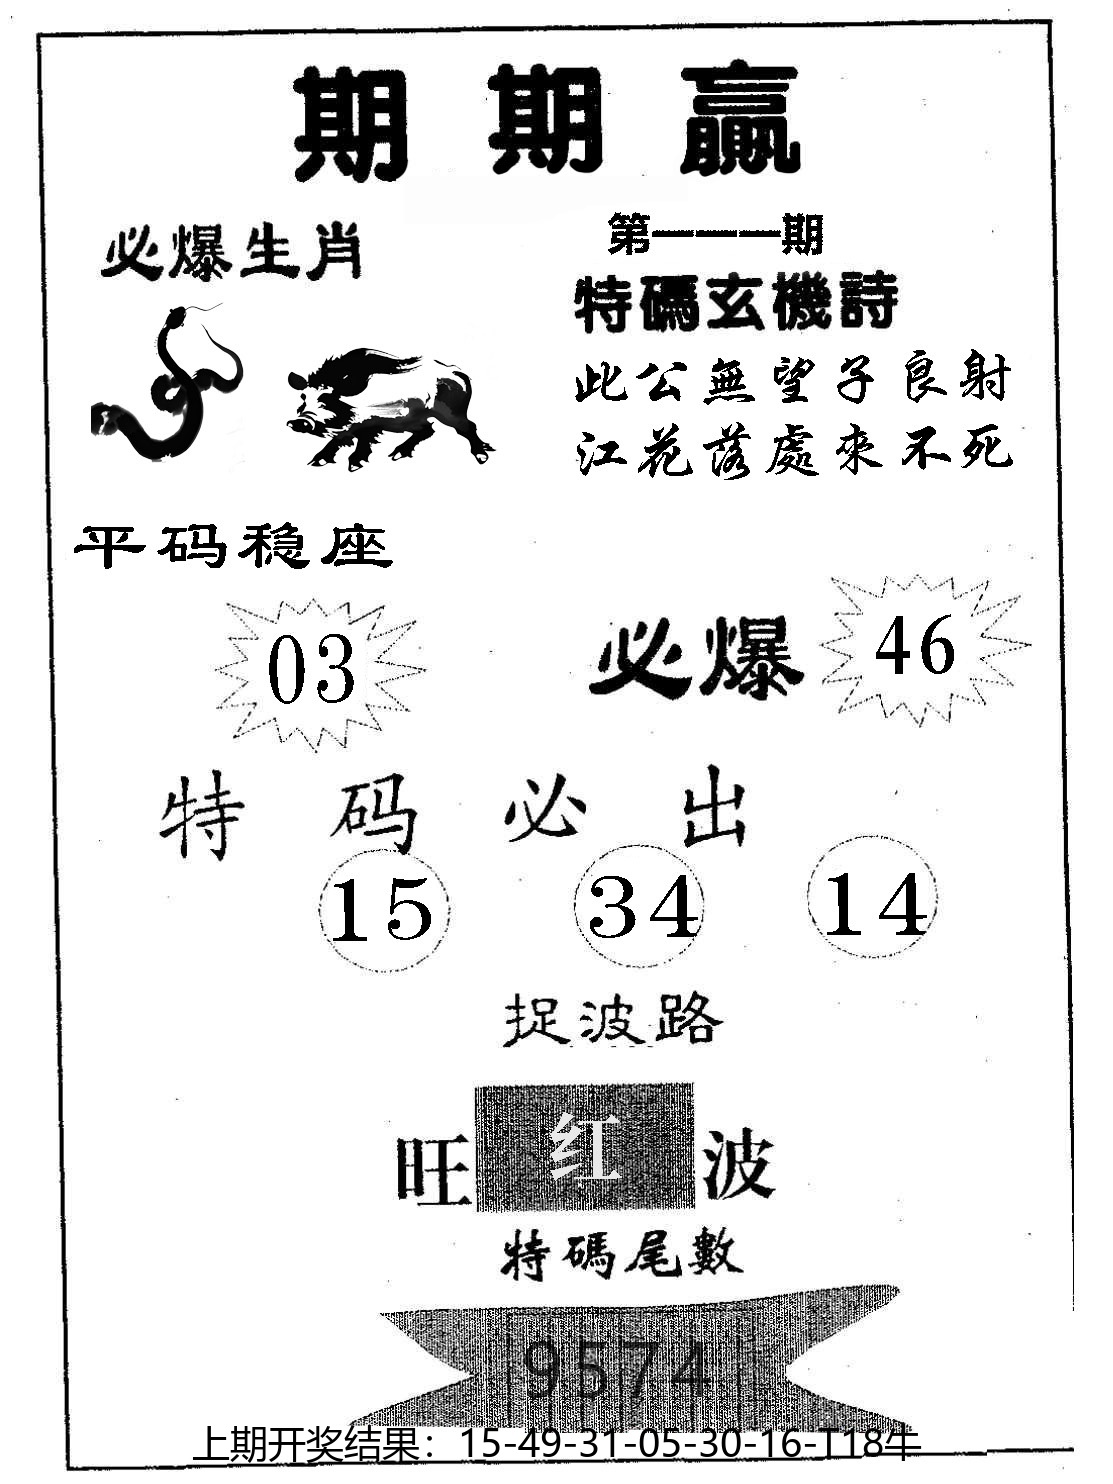 期期贏
必爆生肖
第一一一期
特碼玄機詩
此公無望子良射
江花落處來不死
平码稳座
03
必爆 46
特码必出
15 34 14
捉波路
旺红波
特碼尾數
9574
上期开奖结果：15-49-31-05-30-16-T18牛